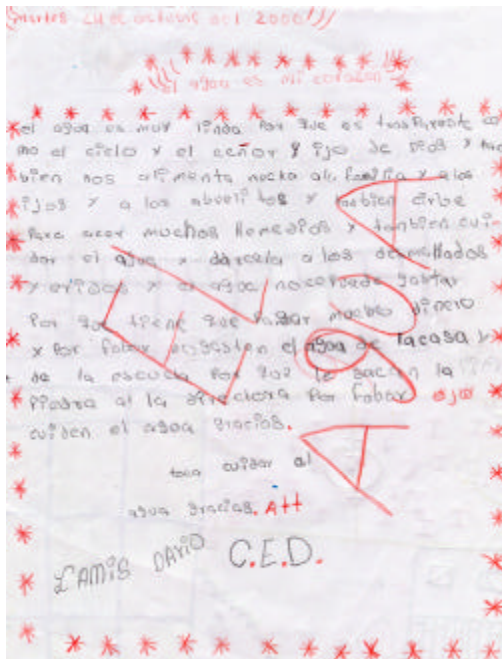 martes 24 de octubre del 2000!//
el agua es mi corazon
el agua es muy linda por que es tanspareste co
mo el cielo y el ceñor y ijo de Dios y tan
bien nos alimenta mucho al familia y alos
ijos y a los abuelitos y tanbien cirbe
para acer muchos Remedios y tanbien cui
dar el agua y darcela a los desmallados
y eridos y el agua no se puede gastar
por que tiene que pagar mucho dinero
y por fabar nogasten el agua de la casa y
de la escuela por que le sacan la
piedra al la directora por fabar ajor
cuiden el agua gracias.
toca cuidar al
agua gracias. Att
LAMIS DARIO C.E.D.
EL AguA